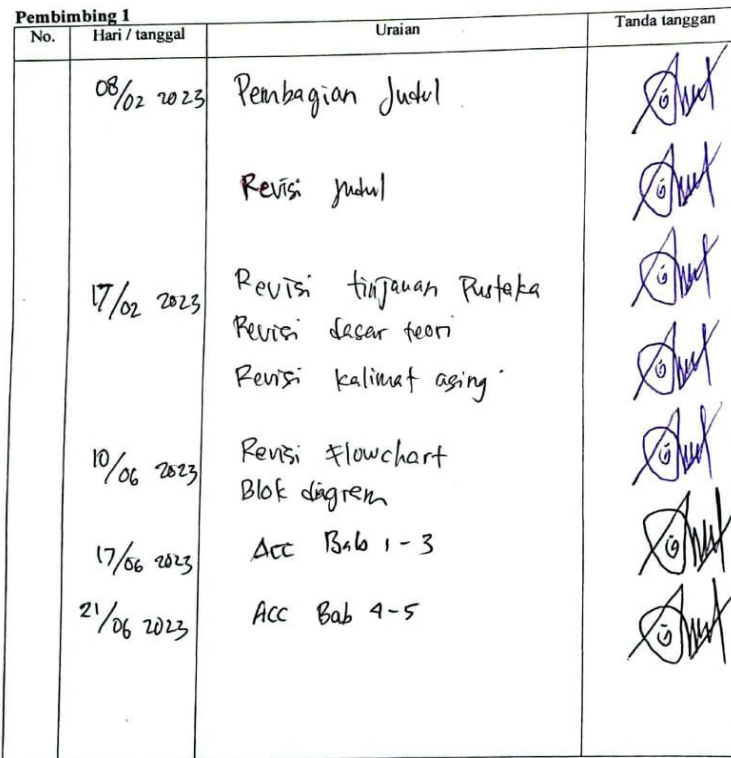 Pembimbing 1
No. Hari / tanggal Uraian Tanda tanggan
08/02 2023 Pembagian Judul
Revisi Judul
17/02 2023 Revisi tinjauan Pustaka
Revisi dasar teori
Revisi kalimat asing
10/06 2023 Revisi Flowchart
Blok diagram
17/06 2023 Acc Bab 1-3
21/06 2023 Acc Bab 4-5